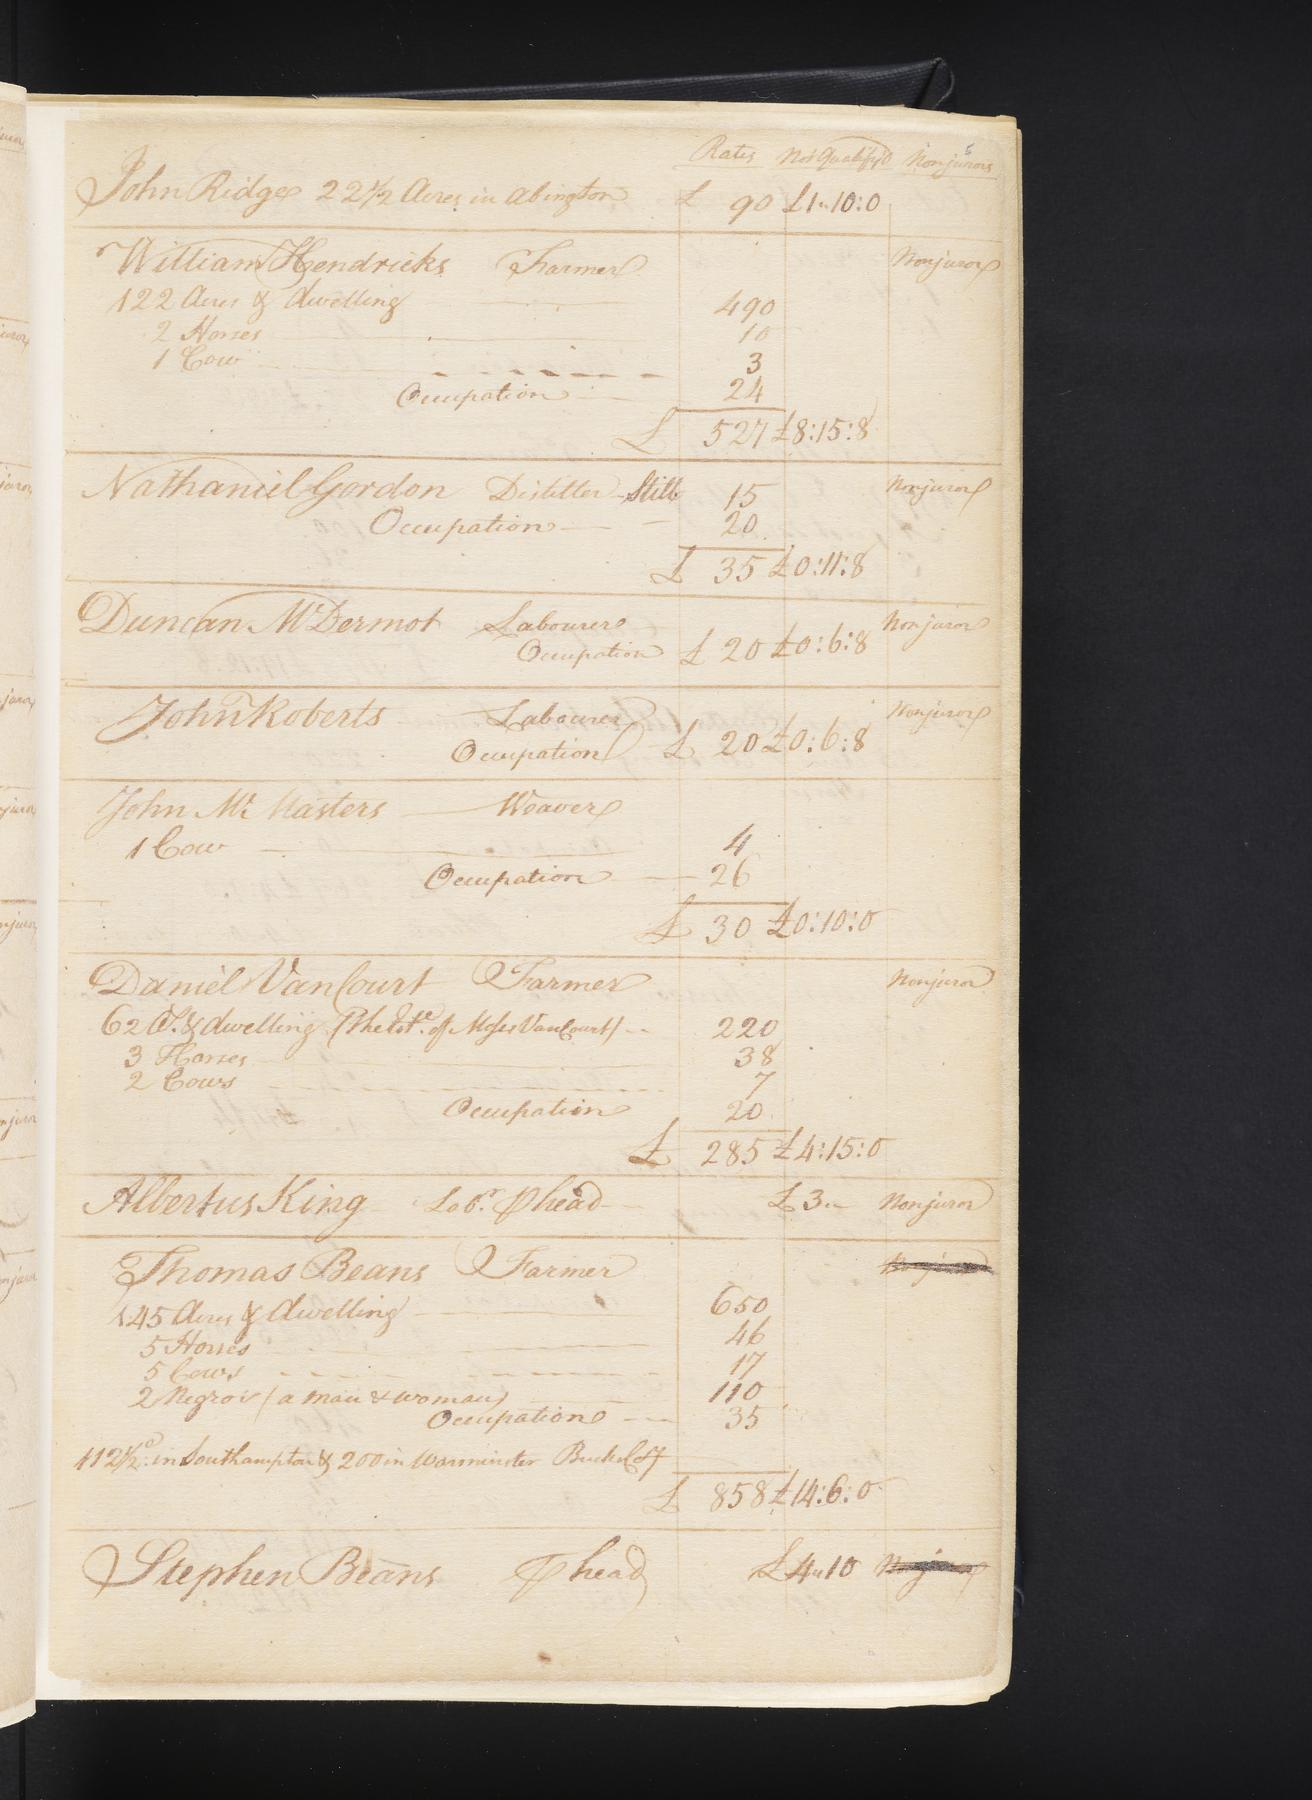 Rates Not Qualify'd Nonjurors
5
John Ridge 22 1/2 Acres in Abington £ 90 £1"10:0
William Hendricks Farmer Nonjuror
122 Acres & dwelling 490
2 Horses 10
1 Cow 3
Occupation 24
£ 527 £8:15:8
Nathaniel Gordon Distiller Still 15 Nonjuror
Occupation 20
£ 35 £0:11:8
Duncan McDermot Labourer Nonjuror
Occupation £ 20 £0:6:8
John Roberts Labourer Nonjuror
Occupation £ 20 £0:6:8
John Mc Masters Weaver
1 Cow 4
Occupation 26
£ 30 £0:10:0
Daniel VanCourt Farmer Nonjuror
62 A. & dwelling (The Este. of Moses VanCourt) 220
3 Horses 38
2 Cows 7
Occupation 20
£ 285 £4:15:0
Albertus King Labr. P head £3"- Nonjuror
Thomas Beans Farmer Nonjuror
145 Acres & dwelling 650
5 Horses 46
5 Cows 17
2 Negros (a man & woman) 110
Occupation 35
112 1/2 a. in Southampton & 200 in Warminster Bucks Coty
£ 858 £14:6:0
Stephen Beans P head £4"10 Nonjuror